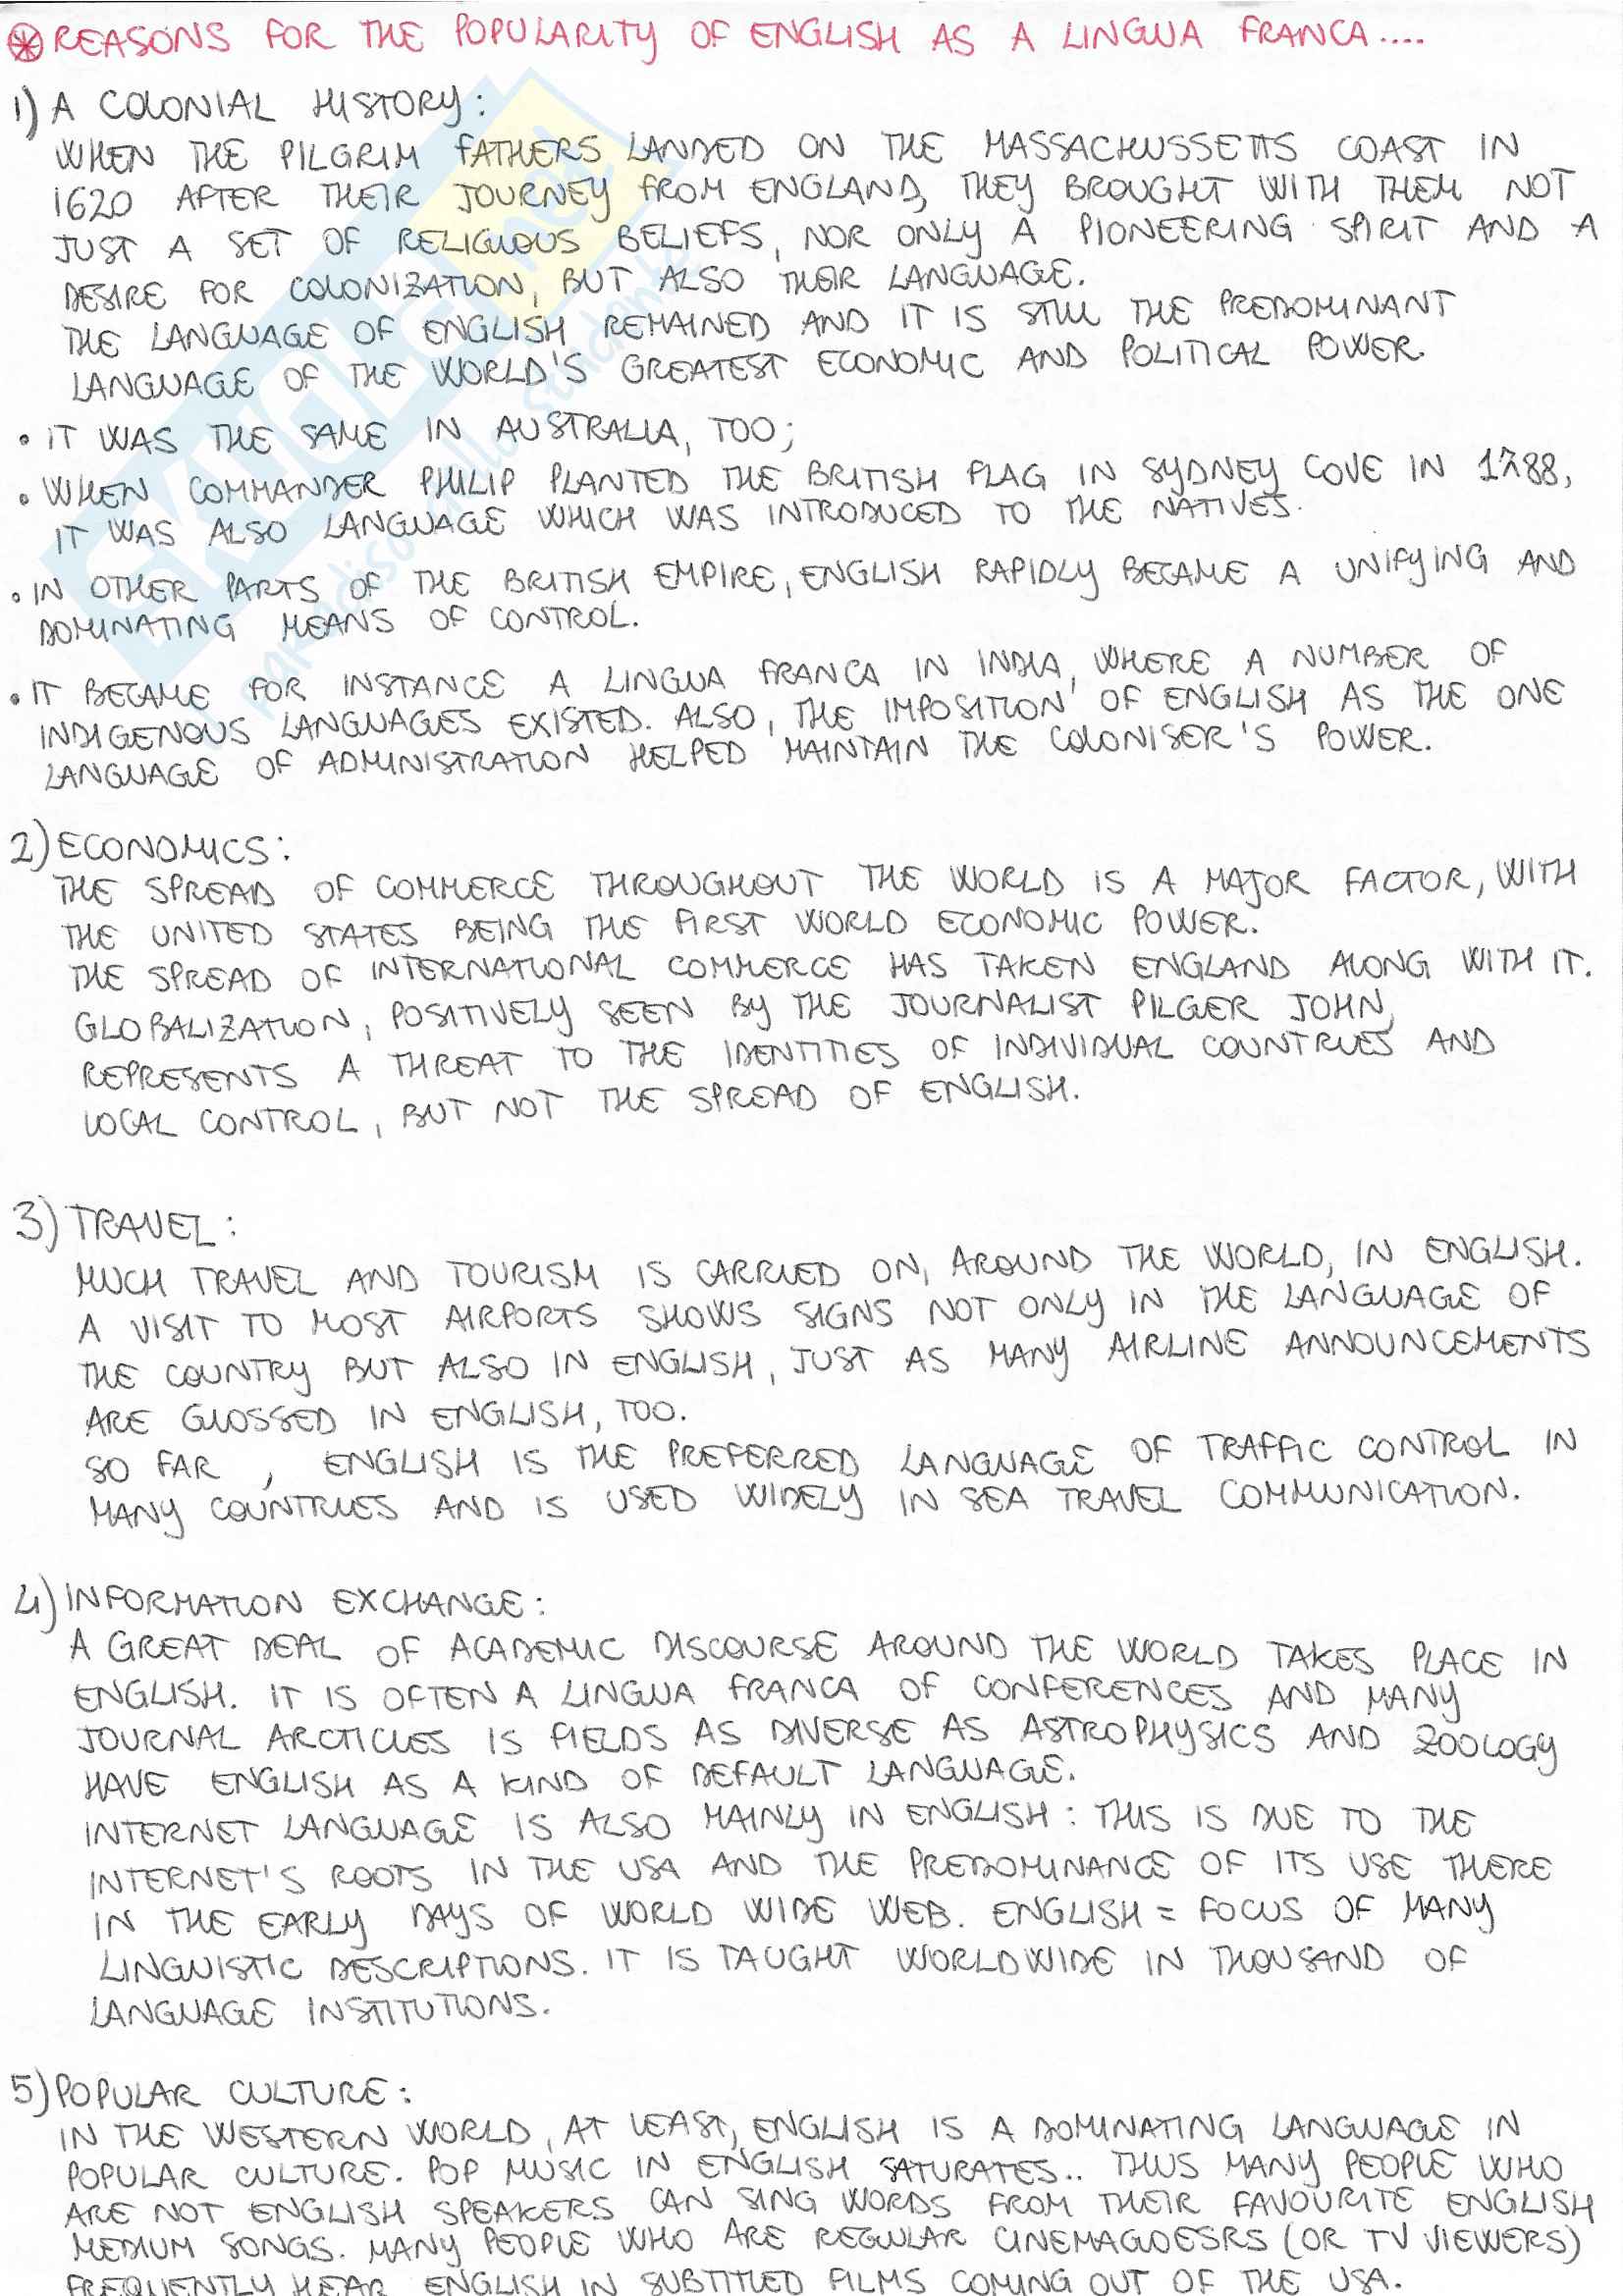 REASONS FOR THE POPULARITY OF ENGLISH AS A LINGUA FRANCA....
1) A COLONIAL HISTORY:
WHEN THE PILGRIM FATHERS LANDED ON THE MASSACHUSSETTS COAST IN
1620 AFTER THEIR JOURNEY FROM ENGLAND, THEY BROUGHT WITH THEM NOT
JUST A SET OF RELIGIOUS BELIEFS, NOR ONLY A PIONEERING SPIRIT AND A
DESIRE FOR COLONIZATION, BUT ALSO THEIR LANGUAGE.
THE LANGUAGE OF ENGLISH REMAINED AND IT IS STILL THE PREDOMINANT
LANGUAGE OF THE WORLD'S GREATEST ECONOMIC AND POLITICAL POWER.
• IT WAS THE SAME IN AUSTRALIA, TOO;
• WHEN COMMANDER PHILIP PLANTED THE BRITISH FLAG IN SYDNEY COVE IN 1788,
IT WAS ALSO LANGUAGE WHICH WAS INTRODUCED TO THE NATIVES.
• IN OTHER PARTS OF THE BRITISH EMPIRE, ENGLISH RAPIDLY BECAME A UNIFYING AND
DOMINATING MEANS OF CONTROL.
• IT BECAME FOR INSTANCE A LINGUA FRANCA IN INDIA, WHERE A NUMBER OF
INDIGENOUS LANGUAGES EXISTED. ALSO, THE IMPOSITION OF ENGLISH AS THE ONE
LANGUAGE OF ADMINISTRATION HELPED MAINTAIN THE COLONISER'S POWER.
2) ECONOMICS:
THE SPREAD OF COMMERCE THROUGHOUT THE WORLD IS A MAJOR FACTOR, WITH
THE UNITED STATES BEING THE FIRST WORLD ECONOMIC POWER.
THE SPREAD OF INTERNATIONAL COMMERCE HAS TAKEN ENGLAND ALONG WITH IT.
GLOBALIZATION, POSITIVELY SEEN BY THE JOURNALIST PILGER JOHN,
REPRESENTS A THREAT TO THE IDENTITIES OF INDIVIDUAL COUNTRIES AND
LOCAL CONTROL, BUT NOT THE SPREAD OF ENGLISH.
3) TRAVEL:
MUCH TRAVEL AND TOURISM IS CARRIED ON, AROUND THE WORLD, IN ENGLISH.
A VISIT TO MOST AIRPORTS SHOWS SIGNS NOT ONLY IN THE LANGUAGE OF
THE COUNTRY BUT ALSO IN ENGLISH, JUST AS MANY AIRLINE ANNOUNCEMENTS
ARE GLOSSED IN ENGLISH, TOO.
SO FAR, ENGLISH IS THE PREFERRED LANGUAGE OF TRAFFIC CONTROL IN
MANY COUNTRIES AND IS USED WIDELY IN SEA TRAVEL COMMUNICATION.
4) INFORMATION EXCHANGE:
A GREAT DEAL OF ACADEMIC DISCOURSE AROUND THE WORLD TAKES PLACE IN
ENGLISH. IT IS OFTEN A LINGUA FRANCA OF CONFERENCES AND MANY
JOURNAL ARCTICLES IS FIELDS AS DIVERSE AS ASTROPHYSICS AND ZOOLOGY
HAVE ENGLISH AS A KIND OF DEFAULT LANGUAGE.
INTERNET LANGUAGE IS ALSO MAINLY IN ENGLISH: THIS IS DUE TO THE
INTERNET'S ROOTS IN THE USA AND THE PREDOMINANCE OF ITS USE THERE
IN THE EARLY DAYS OF WORLD WIDE WEB. ENGLISH = FOCUS OF MANY
LINGUISTIC DESCRIPTIONS. IT IS TAUGHT WORLDWIDE IN THOUSAND OF
LANGUAGE INSTITUTIONS.
5) POPULAR CULTURE:
IN THE WESTERN WORLD, AT LEAST, ENGLISH IS A DOMINATING LANGUAGE IN
POPULAR CULTURE. POP MUSIC IN ENGLISH SATURATES.. THUS MANY PEOPLE WHO
ARE NOT ENGLISH SPEAKERS CAN SING WORDS FROM THEIR FAVOURITE ENGLISH
MEDIUM SONGS. MANY PEOPLE WHO ARE REGULAR CINEMAGOESRS (OR TV VIEWERS)
FREQUENTLY HEAR ENGLISH IN SUBTITLED FILMS COMING OUT OF THE USA.